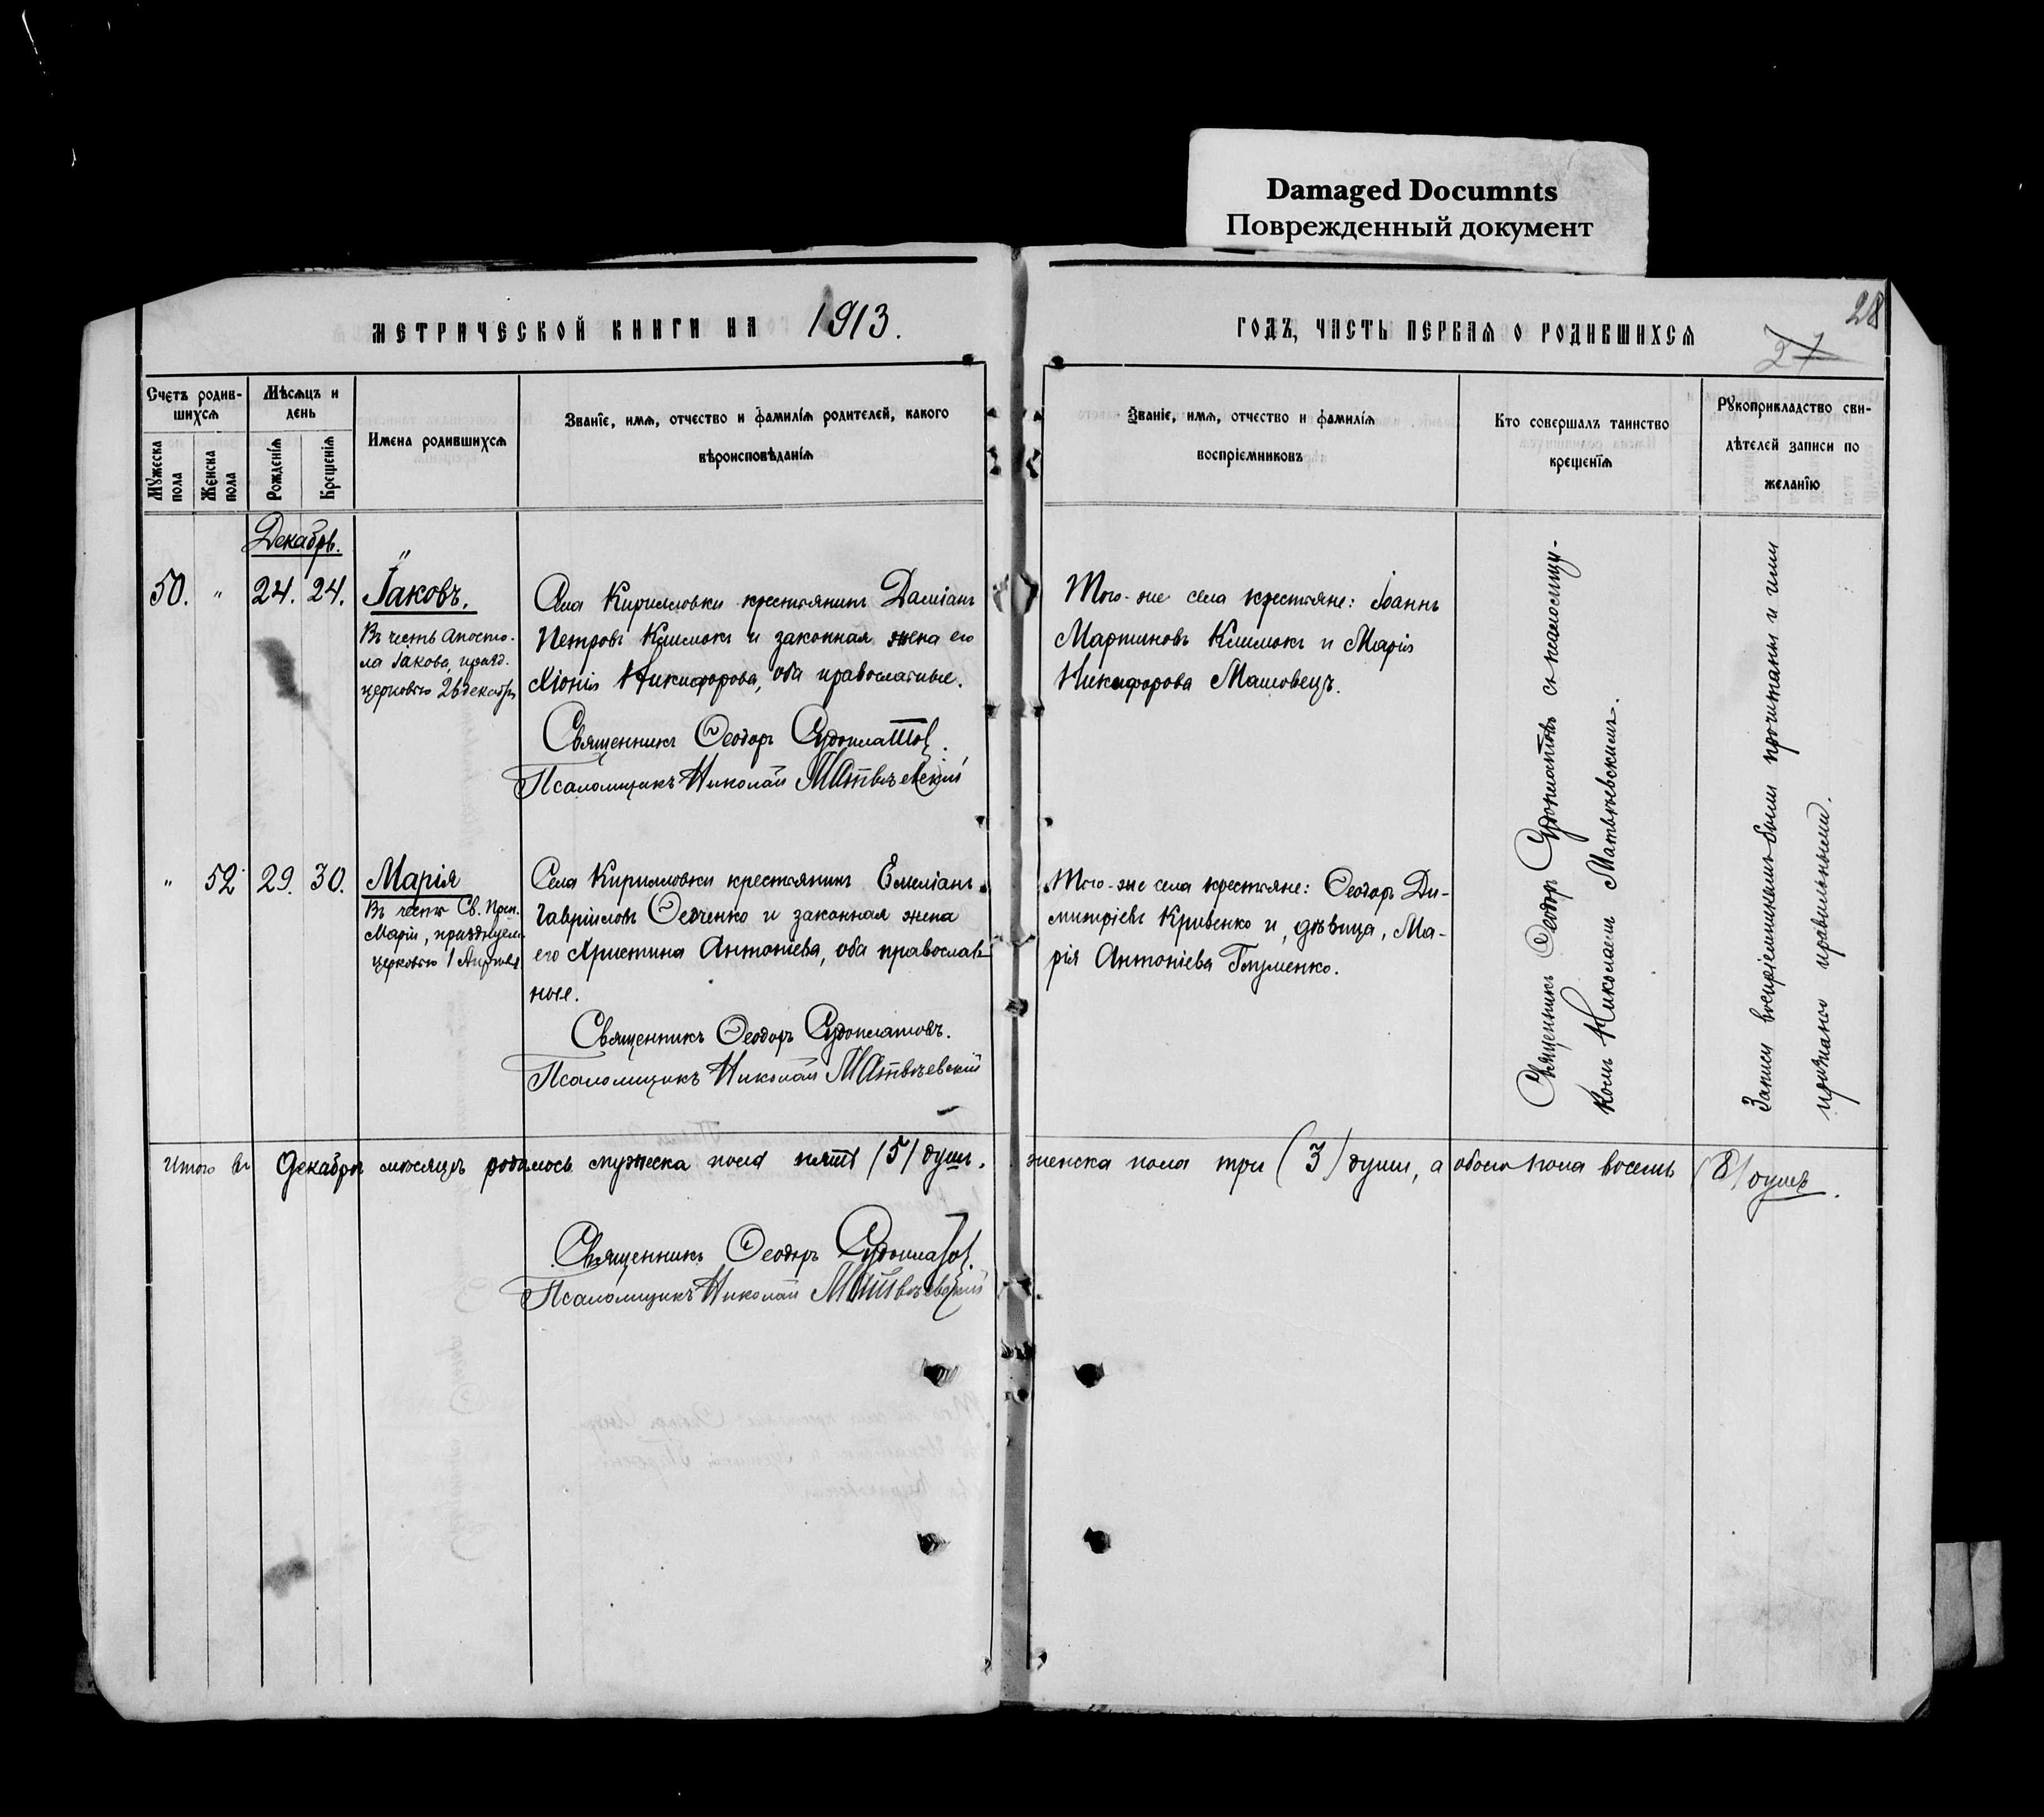 Damaged Documnts
Поврежденный документ
28
27
МЕТРИЧЕСКОЙ КНИГИ НА 1913.
ГОДЪ, ЧАСТЬ ПЕРВАЯ О РОДИВШИХСЯ
Счетъ родив-
шихся
Мужеска
пола
Женска
пола
Мѣсяцъ и
день
Рожденія
Крещенія
Имена родившихся
Званіе, имя, отчество и фамилія родителей, какого
вѣроисповѣданія
Званіе, имя, отчество и фамилія
воспріемниковъ
Кто совершалъ таинство
крещенія
Рукоприкладство сви-
дѣтелей записи по
желанію
Декабрь.
50. " 24. 24.
Іаковъ.
Въ честь Апосто-
ла Іакова, празд.
церковью 26 декабря
Села Кирилловки крестьянинъ Даміанъ
Петровъ Климокъ и законная жена его
Хіонія Никифорова, оба православные.
Священникъ Ѳеодоръ Судоплатовъ.
Псаломщикъ Николай Матвѣевскій
Того-же села крестьяне: Іоаннъ
Мартиновъ Климокъ и Марія
Никифорова Машовецъ.
" 52 29. 30.
Марія
Въ честь Св. Преп.
Маріи, празднуем.
церковью 1 Апрѣля
Села Кирилловки крестьянинъ Емеліанъ
Гавріиловъ Ѳедченко и законная жена
его Христина Антоніева, оба православ-
ные.
Священникъ Ѳеодоръ Судоплатовъ.
Псаломщикъ Николай Матвѣевскій
Того-же села крестьяне: Ѳеодоръ Ди-
митріевъ Кривенко и, дѣвица, Ма-
рія Антоніева Глуменко.
Священникъ Ѳеодоръ Судоплатовъ съ псаломщи-
комъ Николаемъ Матвѣевскимъ.
Записи воспріемникамъ были прочитаны и ими
признаны правильными.
Итого въ Декабрѣ мѣсяцѣ родилось мужеска пола пять (5) душъ, женска пола три (3) души, а обоего пола восемь (8) душъ.
Священникъ Ѳеодоръ Судоплатовъ.
Псаломщикъ Николай Матвѣевскій